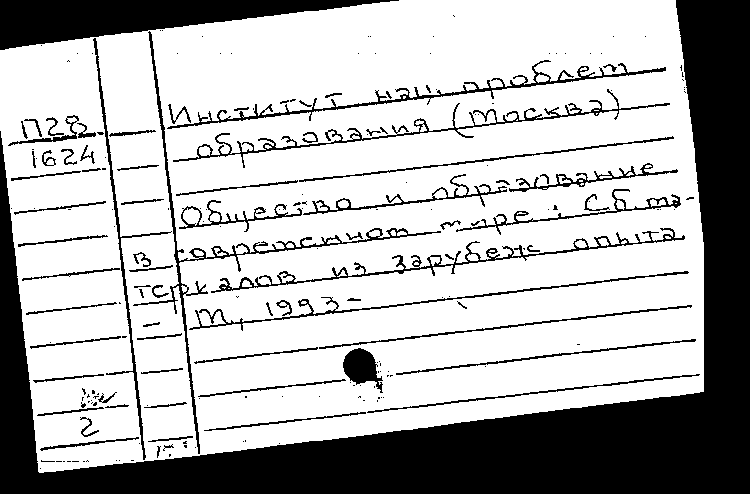 П28
1624
Институт нац. проблем
образования (Москва)
Общество и образование
в современном мире : Сб ма-
териалов из зарубеж опыта
– М., 1993-
2